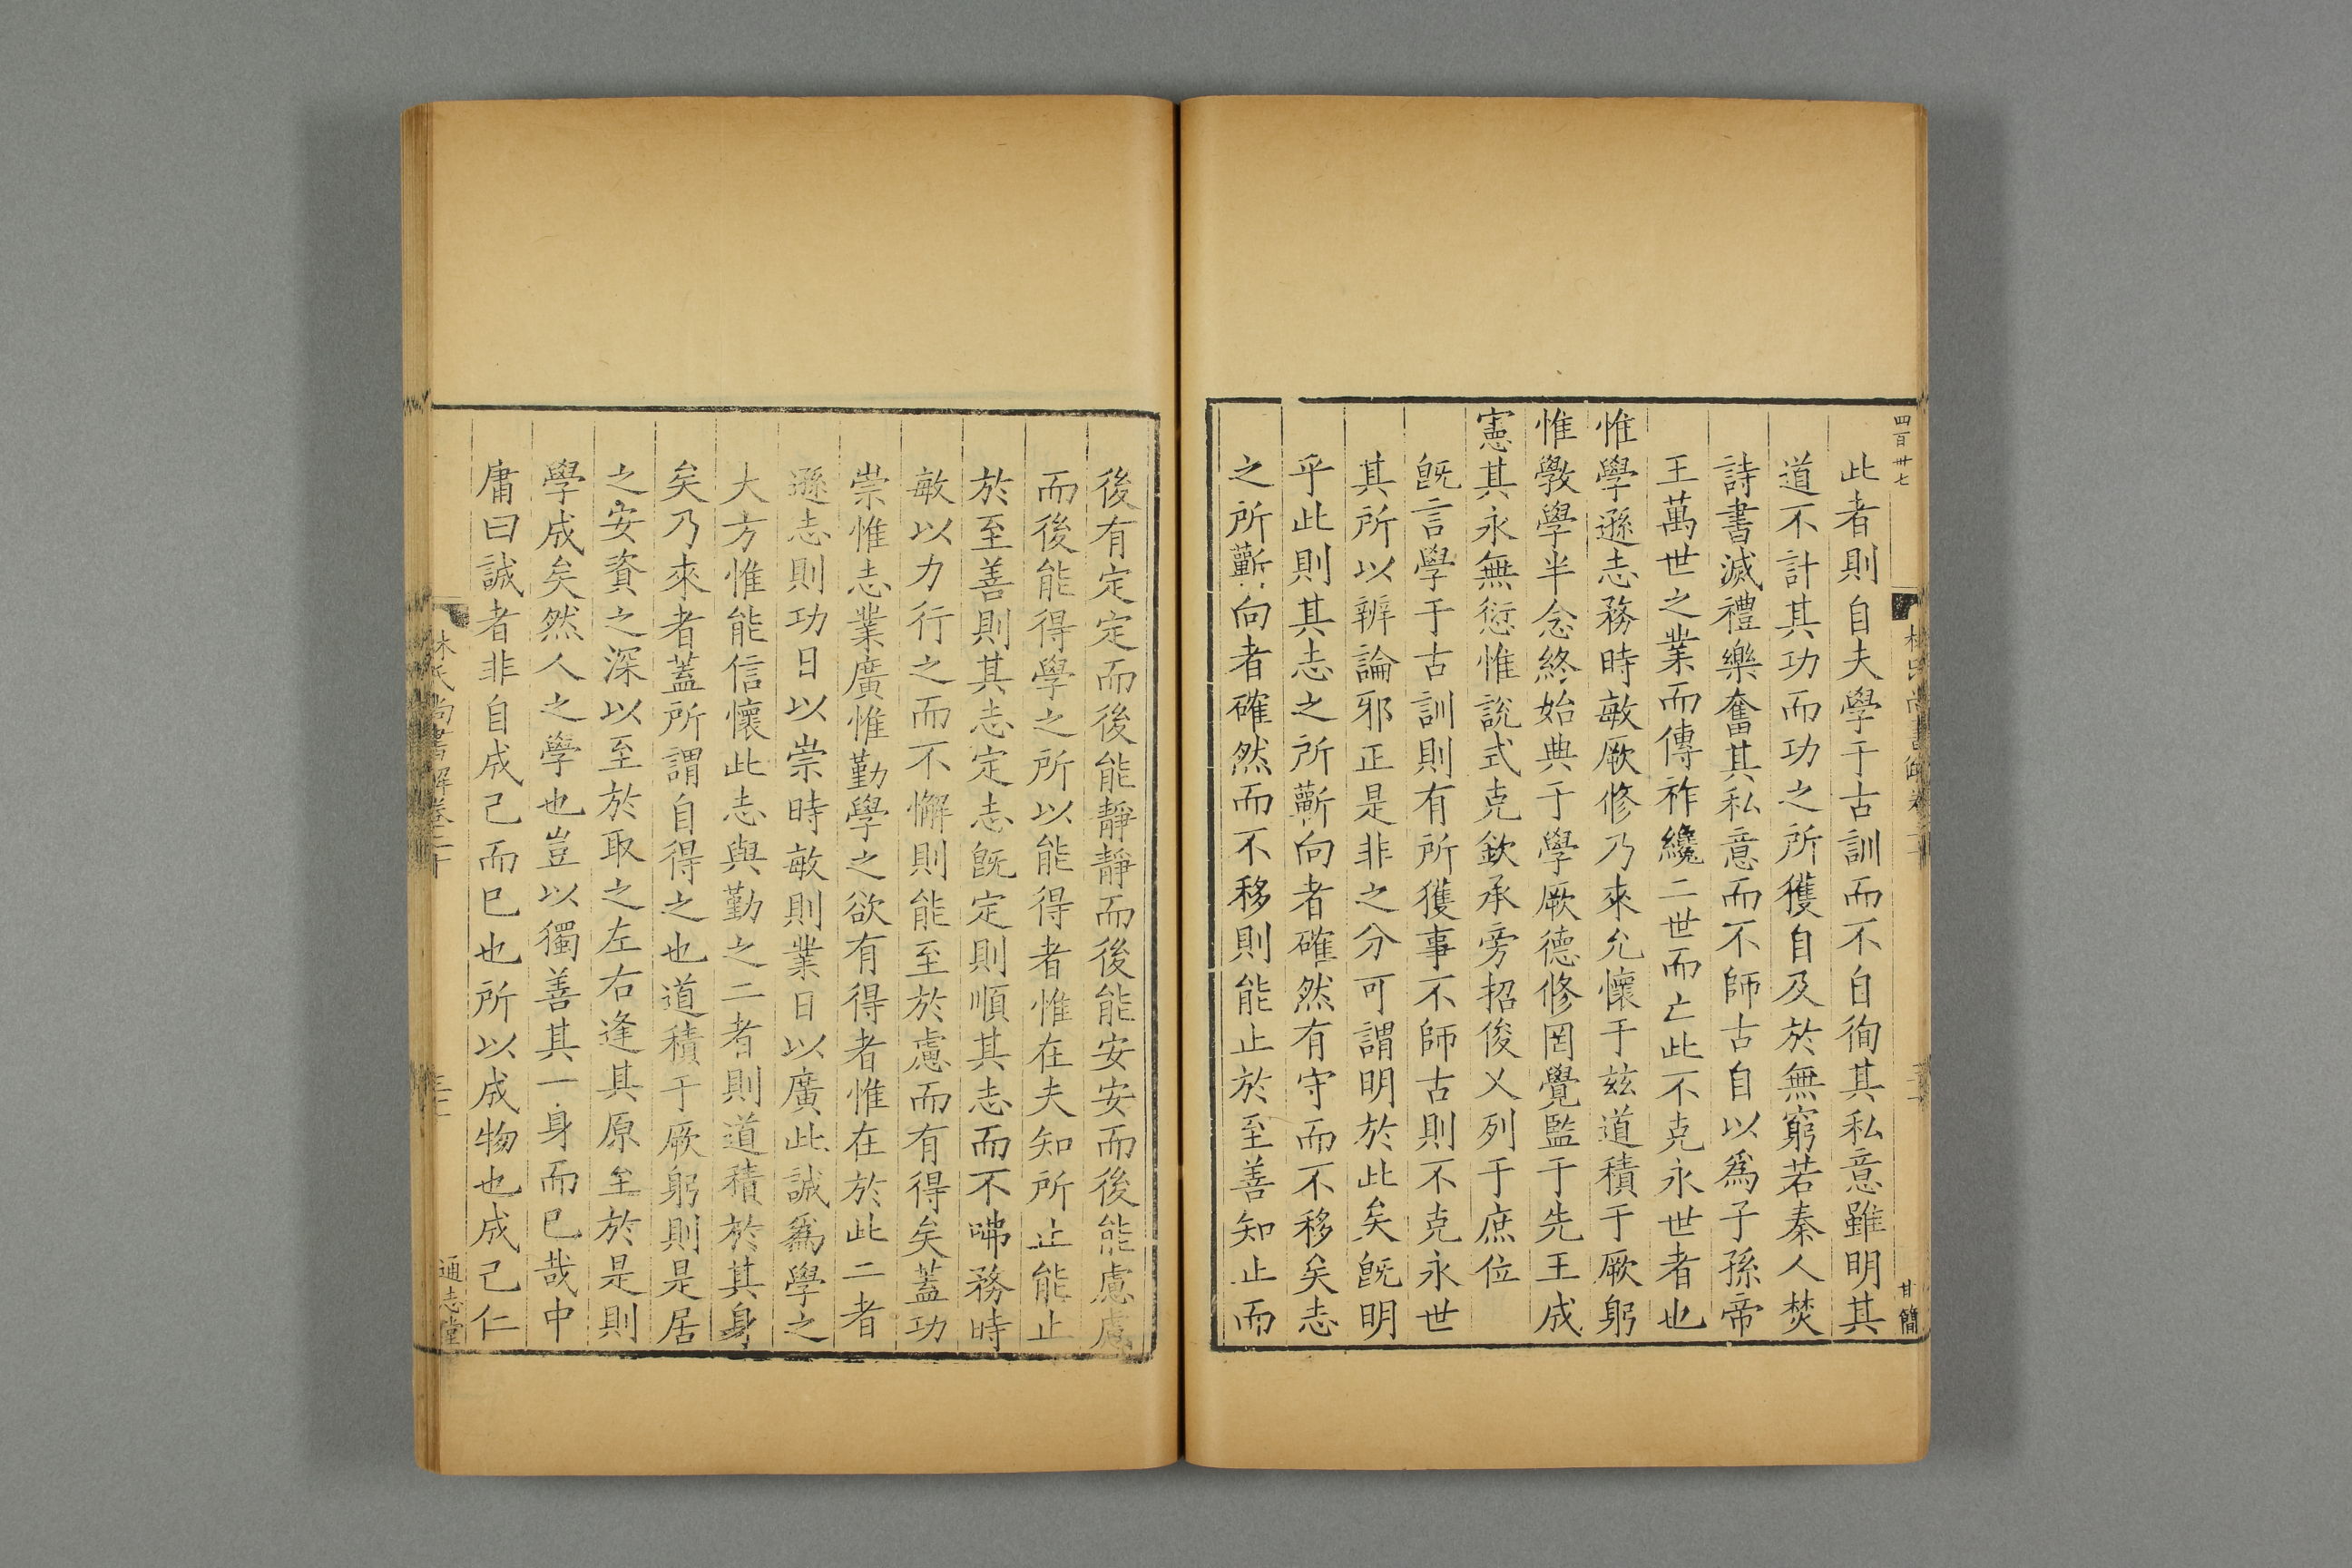 四百卅七
此者則自夫學于古訓而不自徇其私意雖明其
道不計其功而功之所獲自及於無窮若秦人焚
詩書滅禮樂奮其私意而不師古自以爲子孫帝
王萬世之業而傳祚纔二世而亡此不克永世者也
惟學遜志務時敏厥修乃來允懷于兹道積于厥躬
惟斆學半念終始典于學厥德修罔覺監于先王成
憲其永無愆惟說式克欽承旁招俊乂列于庶位
旣言學于古訓則有所獲事不師古則不克永世
其所以辨論邪正是非之分可謂明於此矣旣明
乎此則其志之所蘄向者確然有守而不移矣志
之所蘄向者確然而不移則能止於至善知止而
甘簡
後有定定而後能靜靜而後能安安而後能慮慮
而後能得學之所以能得者惟在夫知所止能止
於至善則其志定志旣定則順其志而不咈務時
敏以力行之而不懈則能至於慮而有得矣蓋功
崇惟志業廣惟勤學之欲有得者惟在於此二者
遜志則功日以崇時敏則業日以廣此誠爲學之
大方惟能信懷此志與勤之二者則道積於其身
矣乃來者蓋所謂自得之也道積于厥躬則是居
之安資之深以至於取之左右逢其原至於是則
學成矣然人之學也豈以獨善其一身而已哉中
庸曰誠者非自成己而已也所以成物也成己仁
林氏尚書解卷二十
通志堂